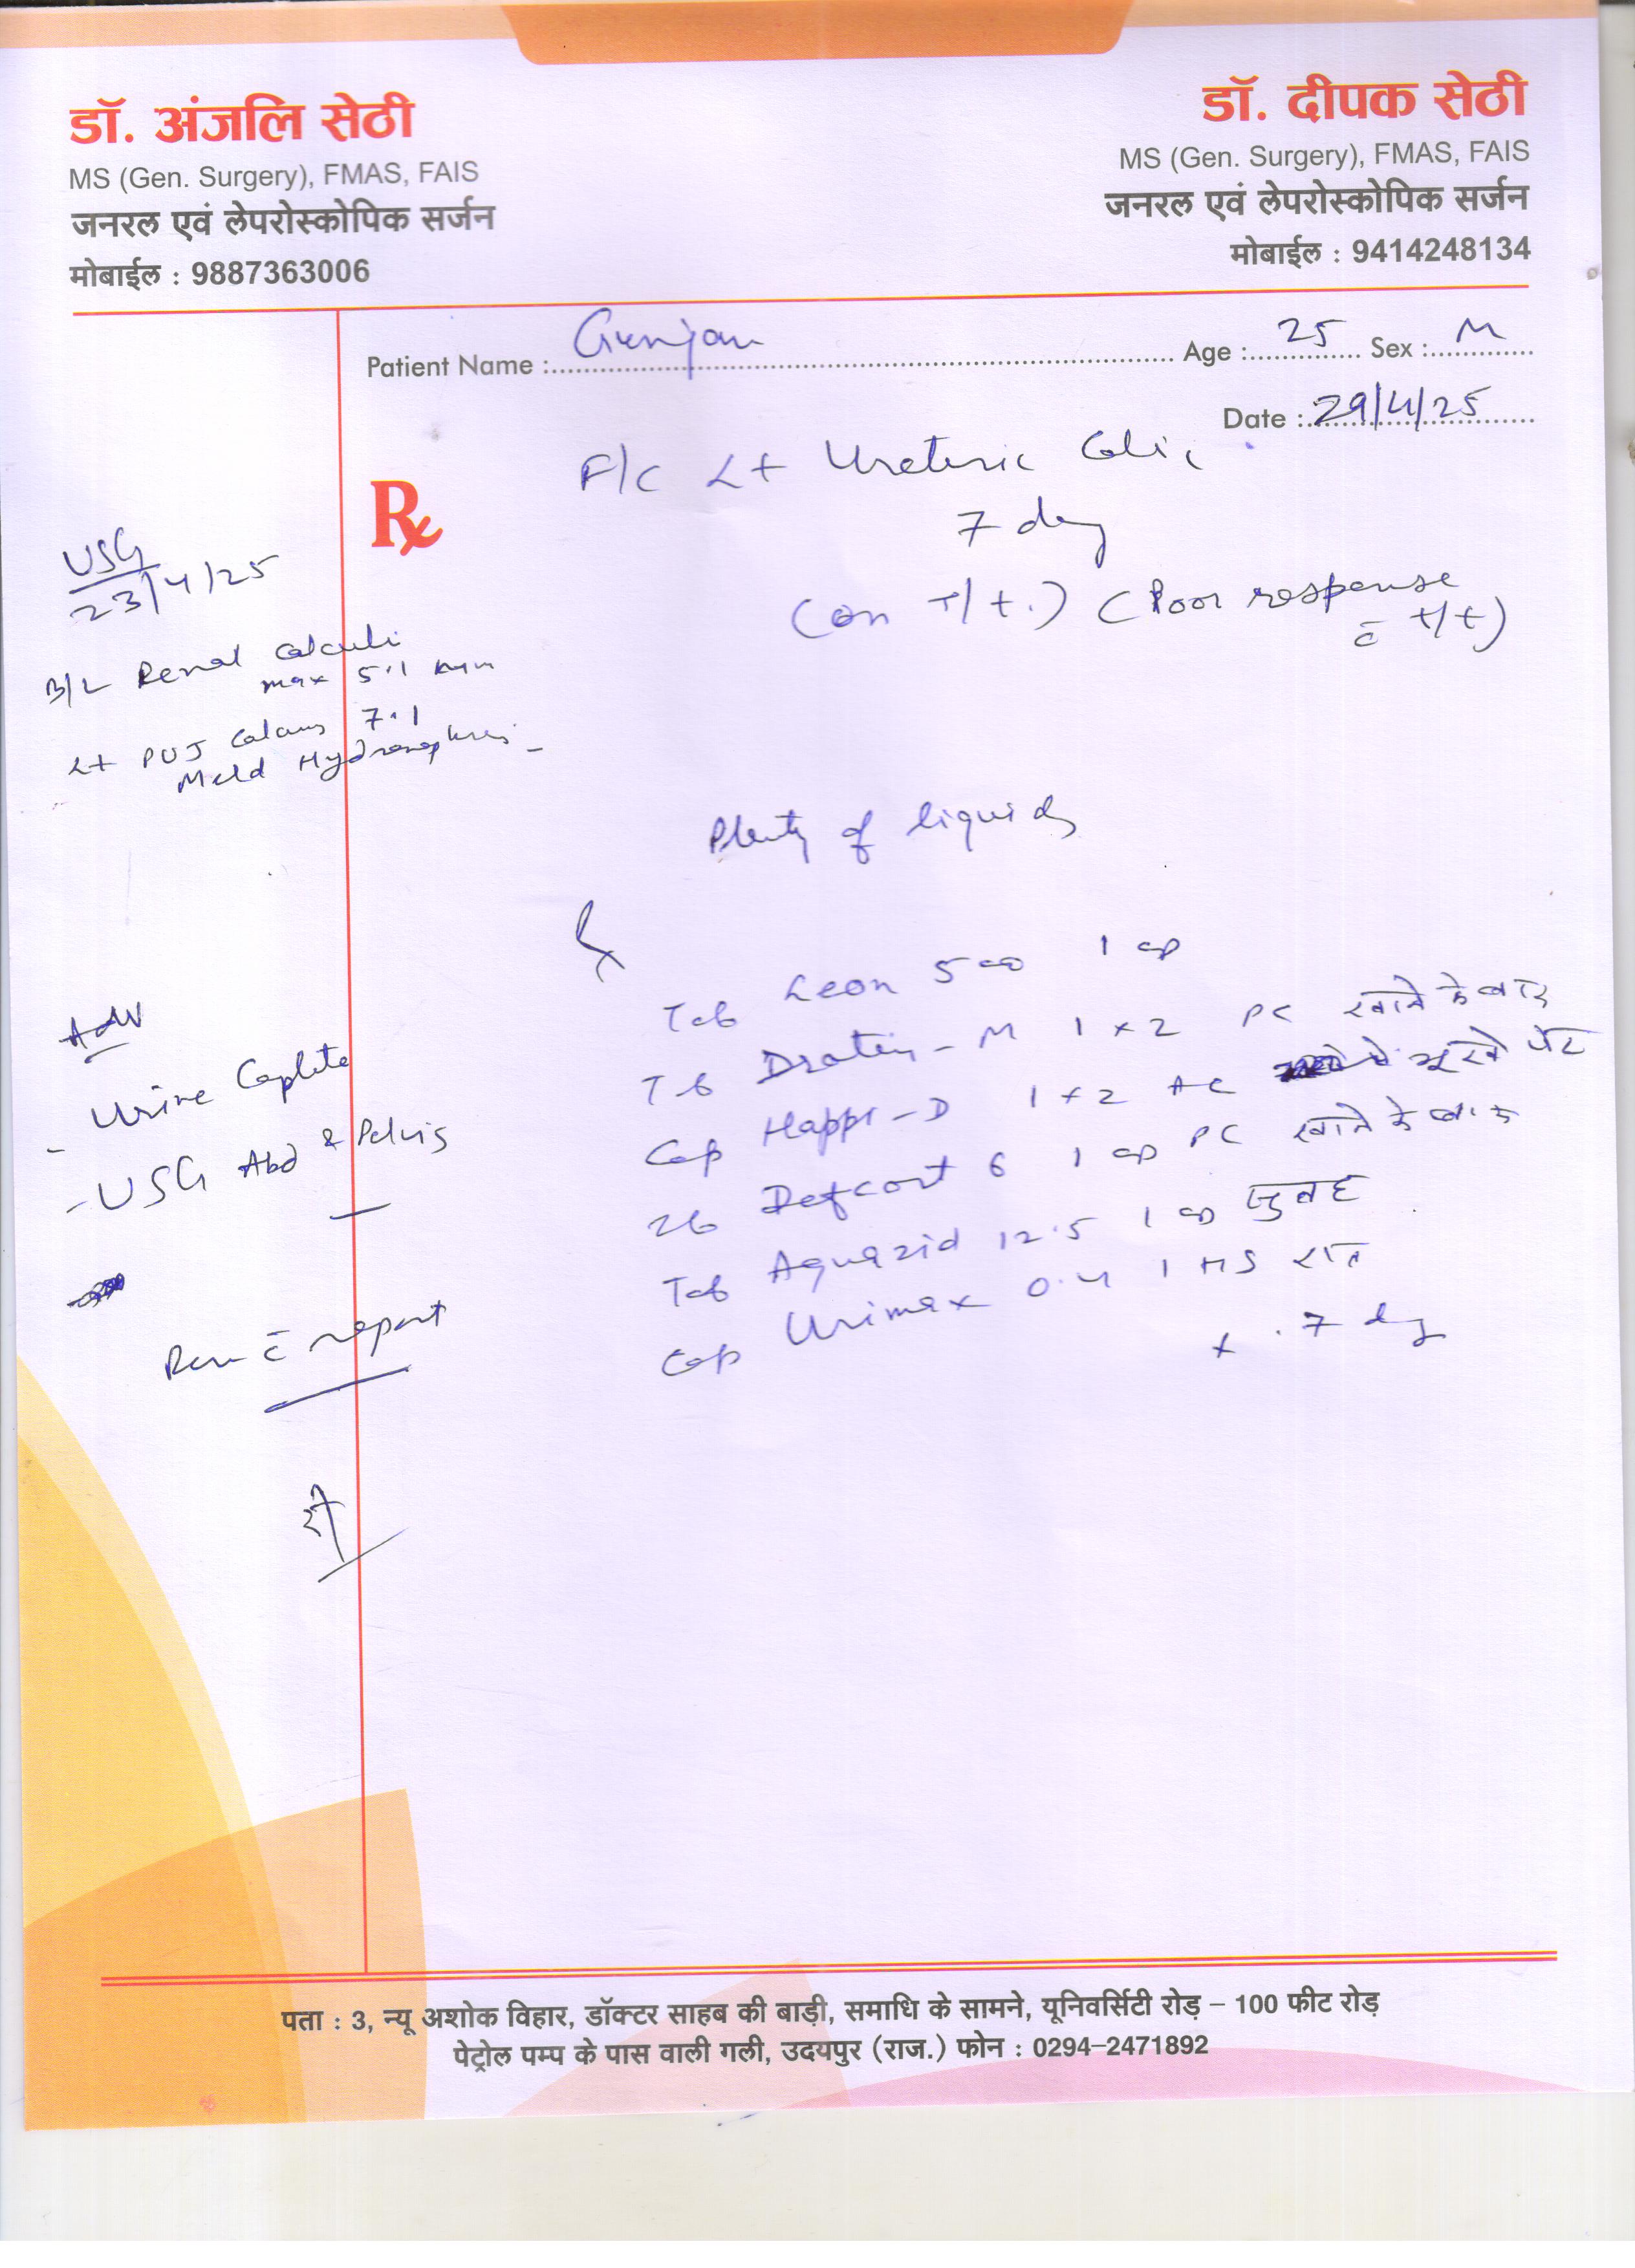 डॉ. अंजलि सेठी
MS (Gen. Surgery), FMAS, FAIS
जनरल एवं लेपरोस्कोपिक सर्जन
मोबाईल : 9887363006
डॉ. दीपक सेठी
MS (Gen. Surgery), FMAS, FAIS
जनरल एवं लेपरोस्कोपिक सर्जन
मोबाईल : 9414248134
Patient Name : Gunjan Age : 25 Sex : M
Date : 29/4/25
Rx
F/C Lt Ureteric Colic
7 day
(on T/t.) (Poor response
c̄ t/t)
USG
23/4/25
B/L Renal Calculi
max 5.1 mm
Lt PUJ Calculus 7.1
Mild Hydronephrosis
Plenty of liquids
Rx
Tab Leon 500 1 OD
Tab Drotin-M 1 x 2 PC खाने के बाद
Cap Happi-D 1 x 2 AC भूखे पेट
Tab Defcort 6 1 OD PC खाने के बाद
Tab Aquazid 12.5 1 OD सुबह
Cap Urimax 0.4 1 HS रात
x 7 day
Adv
- Urine Complete
- USG Abd & Pelvis
Rev c̄ report
पता : 3, न्यू अशोक विहार, डॉक्टर साहब की बाड़ी, समाधि के सामने, यूनिवर्सिटी रोड़ – 100 फीट रोड़
पेट्रोल पम्प के पास वाली गली, उदयपुर (राज.) फोन : 0294-2471892